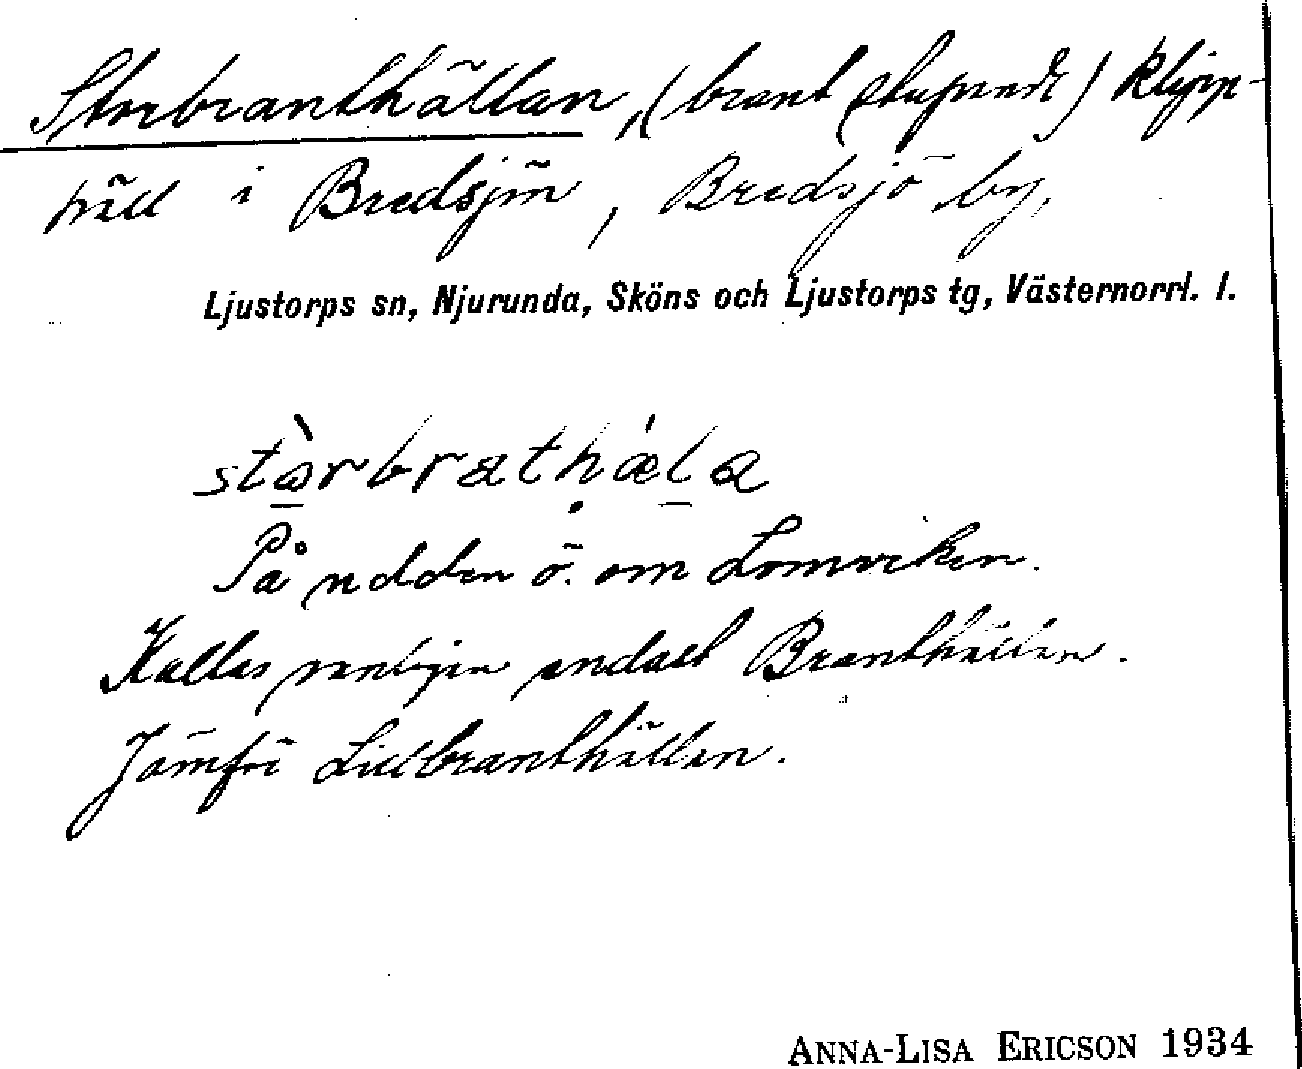 Storbranthällan, (brant stupande) klipp-
häll i Bredsjön, Bredsjö by,
Ljustorps sn, Njurunda, Sköns och Ljustorps tg, Västernorrl. l.
stò̲rbrathǽl̲a
På udden ö. om Lomviken.
Kallas vanligen endast Branthällan.
Jämför Lillbranthällan.
ANNA-LISA ERICSON 1934